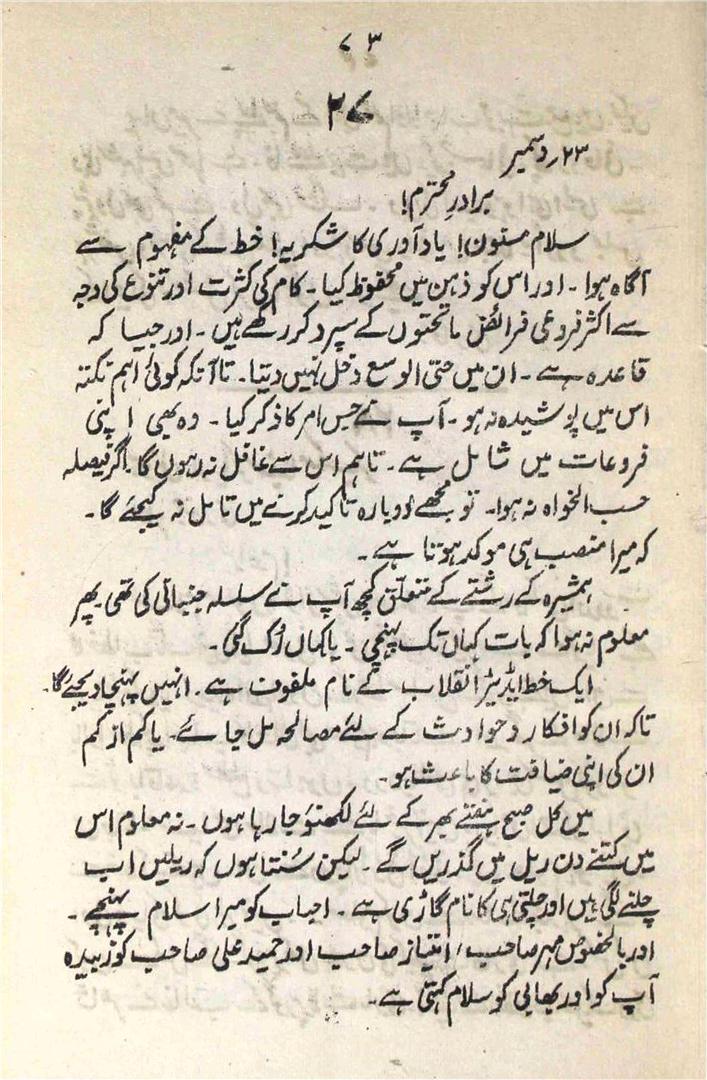 ۷۳
۲۷
۲۳ر دسمبر
برادرِ محترم!
سلام مسنون! یاد آوری کا شکریہ! خط کے مفہوم سے
آگاہ ہوا۔ اور اس کو ذہن میں محفوظ کیا۔ کام کی کثرت اور تنوع کی وجہ
سے اکثر فروعی فرائض ماتحتوں کے سپرد کر رکھے ہیں۔ اور جیسا کہ
قاعدہ ہے۔ ان میں حتی الوسع دخل نہیں دیتا۔ تاآنکہ کوئی اہم نکتہ
اس میں پوشیدہ نہ ہو۔ آپ نے جس امر کا ذکر کیا۔ وہ بھی اپنی
فروعات میں شامل ہے۔ تاہم اس سے غافل نہ رہوں گا۔ اگر فیصلہ
حسب الخواہ نہ ہوا۔ تو مجھے دوبارہ تاکید کرنے میں تامل نہ کیجئے گا۔
کہ میرا منصب ہی موکد ہونا ہے۔
ہمشیرہ کے رشتے کے متعلق کچھ آپ نے سلسلہ جنبانی کی تھی پھر
معلوم نہ ہوا کہ بات کہاں تک پہنچی۔ یا کہاں رُک گئی۔
ایک خط ایڈیٹر انقلاب کے نام ملفوف ہے۔ انہیں پہنچا دیجئے گا۔
تاکہ ان کو افکار و حوادث کے لئے مصالحہ مل جائے۔ یا کم از کم
ان کی اپنی ضیافت کا باعث ہو۔
میں کل صبح ہفتے بھر کے لئے لکھنؤ جا رہا ہوں۔ نہ معلوم اس
میں کتنے دن ریل میں گذریں گے۔ لیکن سُنتا ہوں کہ ریلیں اب
چلنے لگی ہیں اور چلتی ہی کا نام گاڑی ہے۔ احباب کو میرا سلام پہنچے۔
اور بالخصوص مہر صاحب، امتیاز صاحب اور حمید علی صاحب کو زبیدہ
آپ کو اور بھابی کو سلام کہتی ہے۔